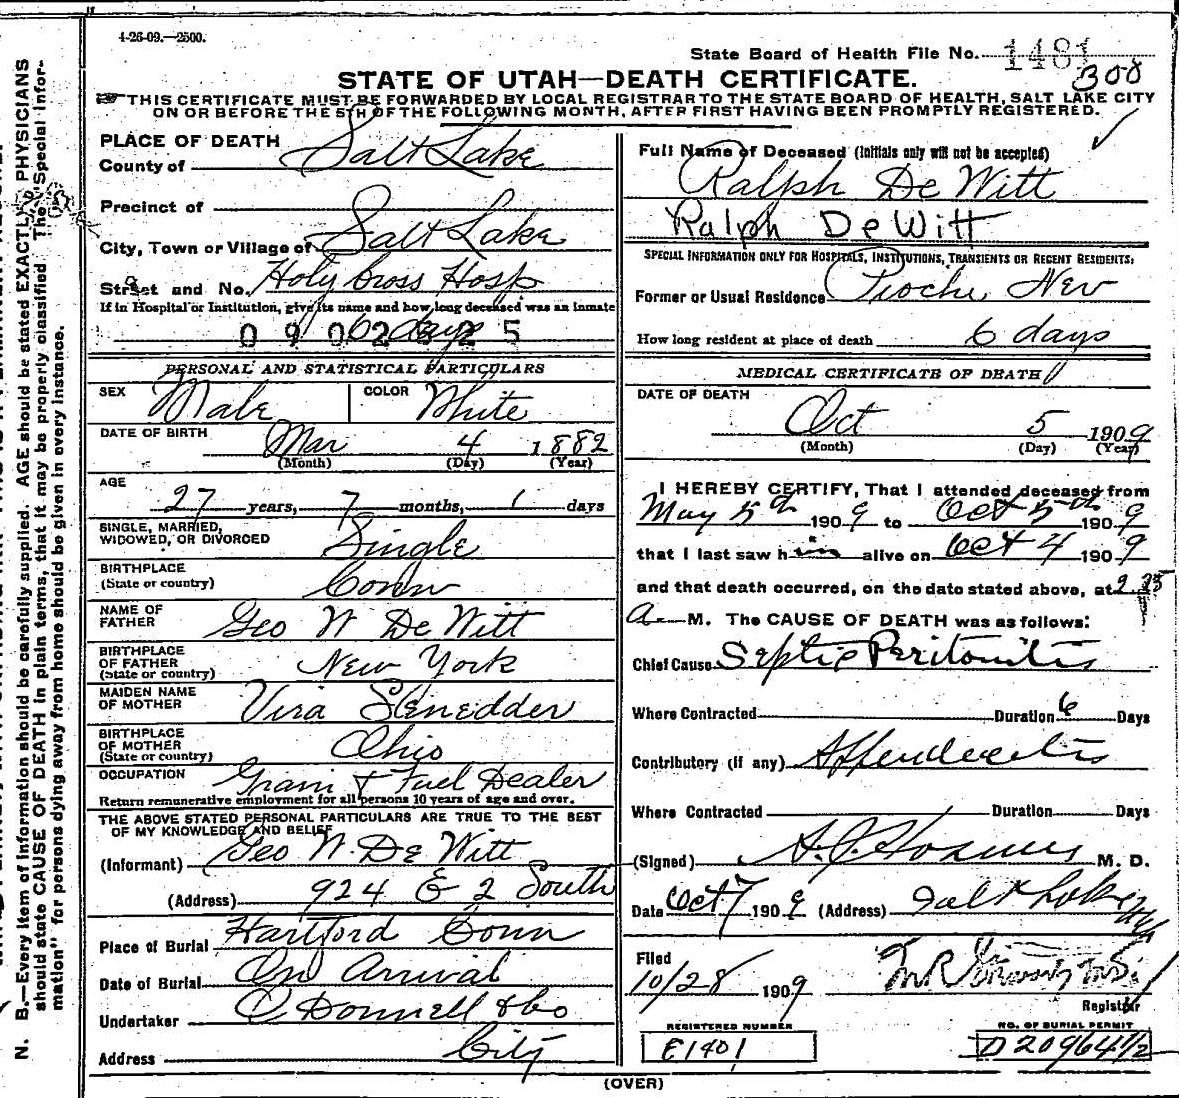 4-26-09.—2500.
State Board of Health File No. 1481
308
STATE OF UTAH—DEATH CERTIFICATE.
THIS CERTIFICATE MUST BE FORWARDED BY LOCAL REGISTRAR TO THE STATE BOARD OF HEALTH, SALT LAKE CITY
ON OR BEFORE THE 5TH OF THE FOLLOWING MONTH, AFTER FIRST HAVING BEEN PROMPTLY REGISTERED.
PLACE OF DEATH
County of Salt Lake
Precinct of
City, Town or Village of Salt Lake
Street and No. Holy Cross Hosp
If in Hospital or Institution, give its name and how long deceased was an inmate
6 days
PERSONAL AND STATISTICAL PARTICULARS
SEX Male COLOR White
DATE OF BIRTH Mar 4 1882
(Month) (Day) (Year)
AGE
27 years, 7 months, 1 days
SINGLE, MARRIED,
WIDOWED, OR DIVORCED Single
BIRTHPLACE
(State or country) Conn
NAME OF
FATHER Geo W De Witt
BIRTHPLACE
OF FATHER
(State or country) New York
MAIDEN NAME
OF MOTHER Vira
BIRTHPLACE
OF MOTHER
(State or country) Ohio
OCCUPATION Grain & Fuel Dealer
Return remunerative employment for all persons 10 years of age and over.
THE ABOVE STATED PERSONAL PARTICULARS ARE TRUE TO THE BEST
OF MY KNOWLEDGE AND BELIEF
(Informant) Geo W. De Witt
(Address) 924 E 2 South
Place of Burial Hartford Conn
Date of Burial On Arrival
Undertaker O Donnell & Co
Address City
Full Name of Deceased (Initials only will not be accepted)
Ralph De Witt
Ralph DeWitt
SPECIAL INFORMATION ONLY FOR HOSPITALS, INSTITUTIONS, TRANSIENTS OR RECENT RESIDENTS:
Former or Usual Residence Pioche Nev
How long resident at place of death 6 days
MEDICAL CERTIFICATE OF DEATH
DATE OF DEATH
Oct 5 1909
(Month) (Day) (Year)
I HEREBY CERTIFY, That I attended deceased from
May 5th 1909 to Oct 5th 1909
that I last saw him alive on Oct 4 1909
and that death occurred, on the date stated above, at
A M. The CAUSE OF DEATH was as follows:
Chief Cause Septic Peritonitis
Where Contracted Duration 6 Days
Contributory (if any) Appendicitis
Where Contracted Duration Days
(Signed) M. D.
Date Oct 7 1909 (Address) Salt Lake
Filed
10/28 1909
Registrar
REGISTERED NUMBER
E1401
NO. OF BURIAL PERMIT
D 20964 1/2
(OVER)
N. B.—Every item of information should be carefully supplied. AGE should be stated EXACTLY. PHYSICIANS
should state CAUSE OF DEATH in plain terms, that it may be properly classified. The "Special Infor-
mation" for persons dying away from home should be given in every instance.